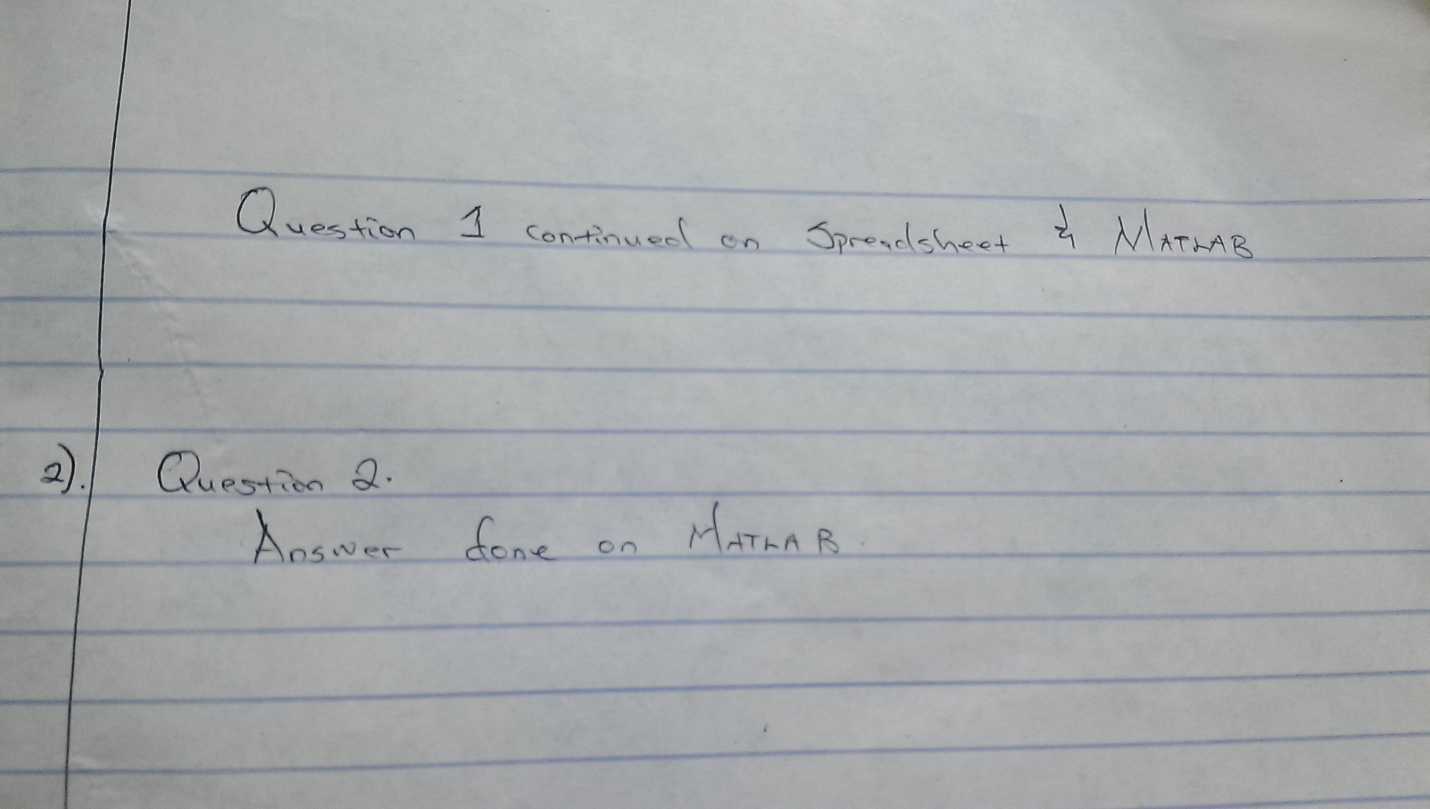 Question 1 continued on Spreadsheet & MATLAB
2). Question 2.
Answer done on MATLAB.